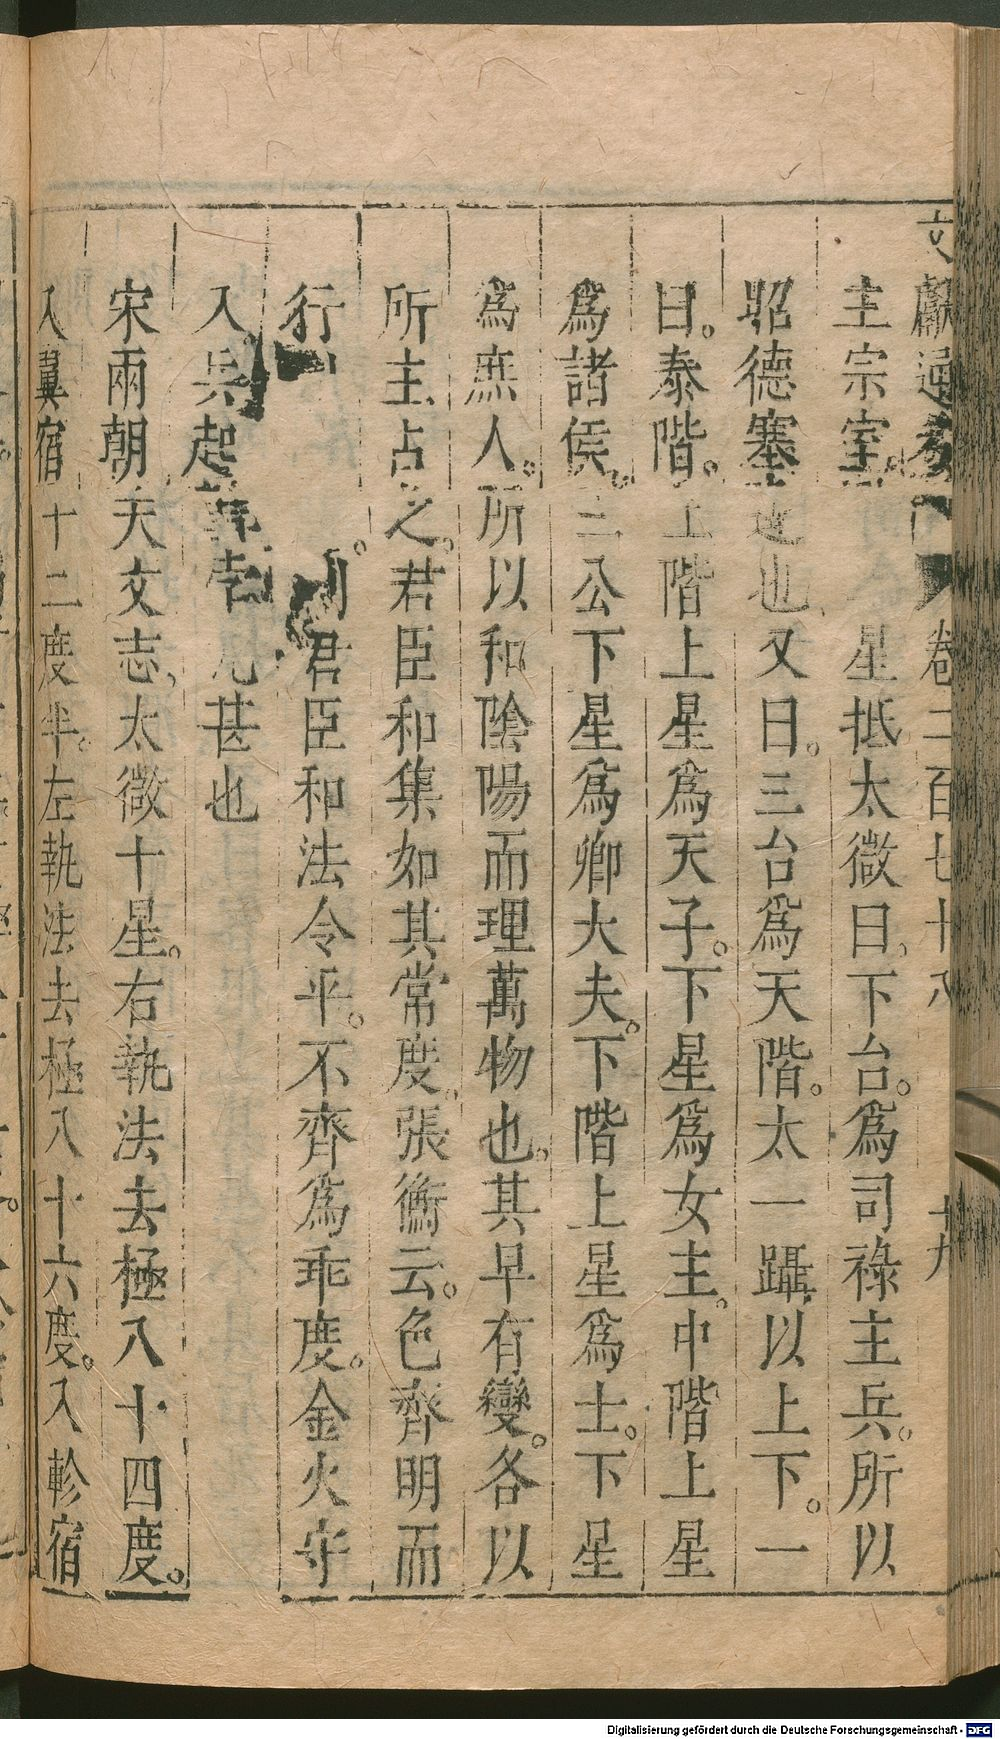 文獻通考 卷二百七十八 十九
主宗室 星抵太微曰下台。爲司祿主兵。所以
昭德塞違也又曰。三台爲天階。太一躡以上下。一
曰。泰階。上階上星爲天子。下星爲女主。中階上星
爲諸侯。三公下星爲卿大夫。下階上星爲士。下星
爲庶人。所以和陰陽而理萬物也。其早有變。各以
所主占之。君臣和集如其常度。張衡云。色齊明而
行 君臣和法令平。不齊爲乖度。金火守
入。兵起 甚也
宋兩朝天文志太微十星。右執法去極八十四度。
入翼宿十二度半。左執法去極八十六度。入軫宿
Digitalisierung gefördert durch die Deutsche Forschungsgemeinschaft - DFG